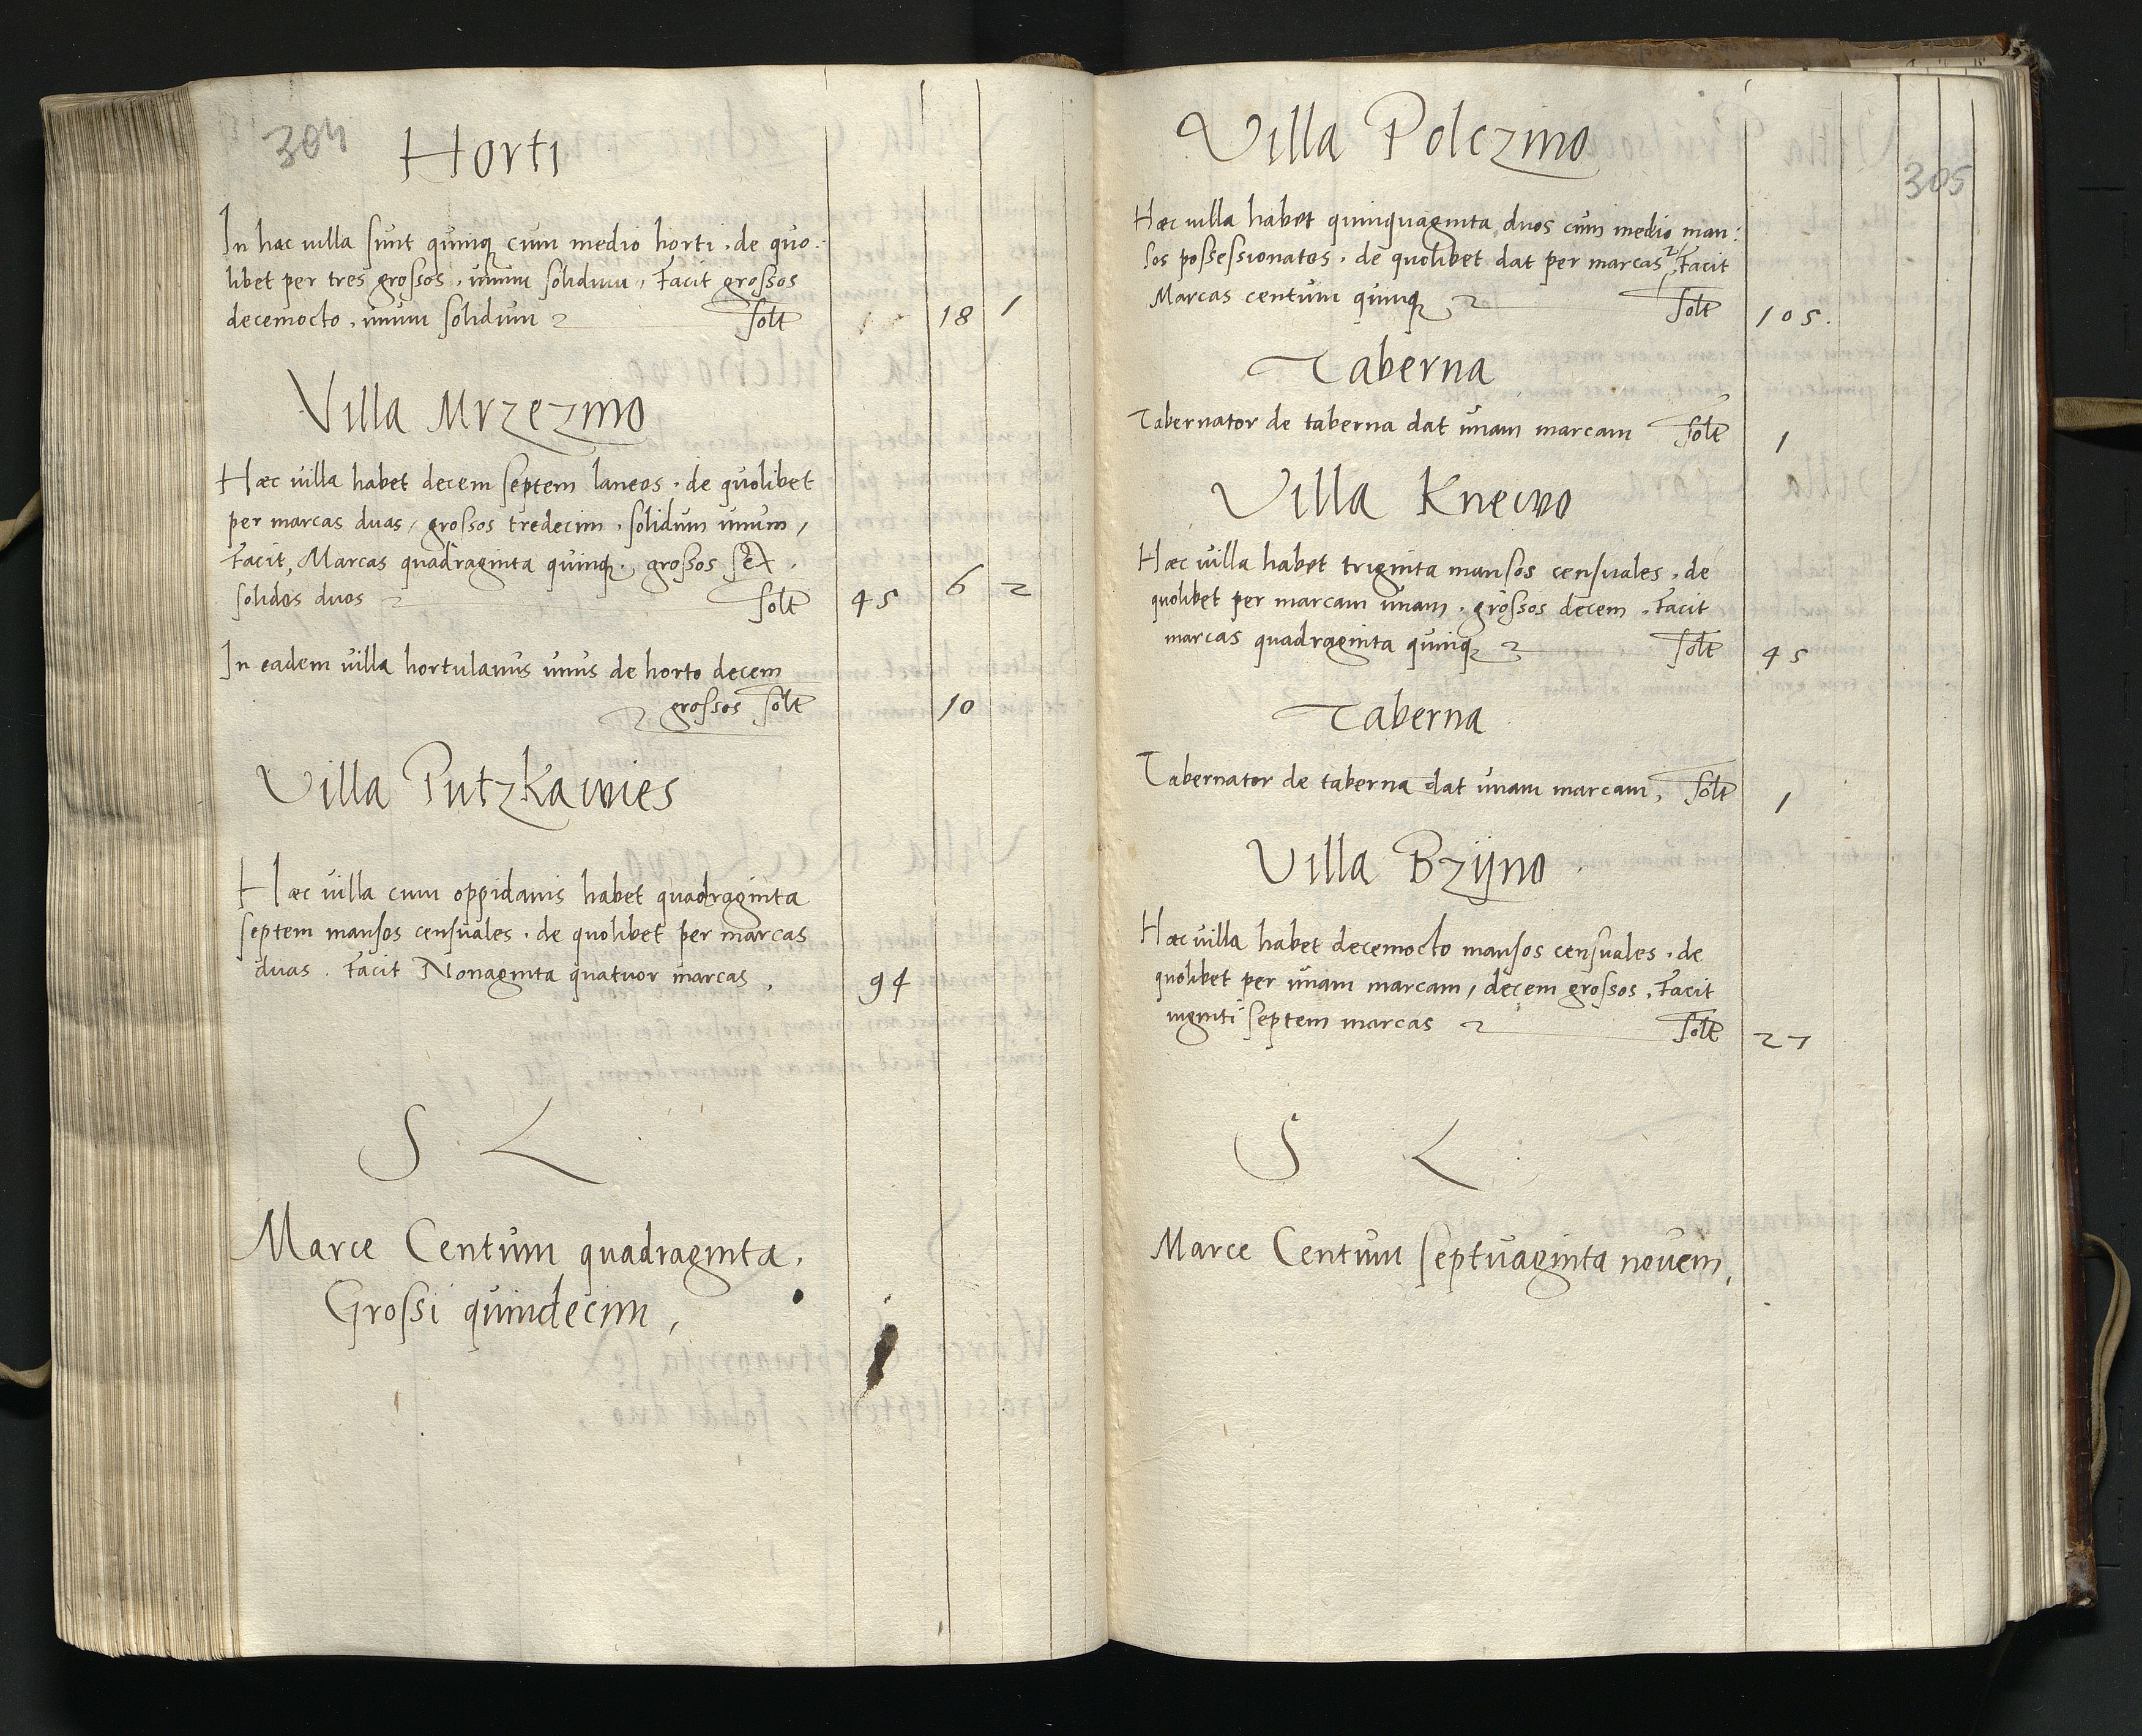 304
Horti
In hac villa sunt quinq cum medio horti . de quo.
libet per tres grossos , unum solidum , Facit grossos
decemocto , unum solidum solt 18 1
Villa Mrzezino
Haec villa habet decem septem laneos . de quolibet
per marcas duas , grossos tredecim . solidum unum ,
Facit, Marcas quadraginta quinq , grossos sex .
solidos duos solt 45 6 2
In eadem villa hortulanus unus de horto decem
grossos solt 10
Villa Putzkawies
Haec villa cum oppidanis habet quadraginta
septem mansos censuales . de quolibet per marcas
duas . Facit Nonaginta quatuor marcas , 94
S L
Marce Centum quadraginta ,
Grossi quindecim ,
305
Villa Polczino
Haec villa habet quinquaginta duos cum medio man:
sos possessionatos . de quolibet dat per marcas 2 , Facit
Marcas centum quinq solt 105.
Taberna
Tabernator de taberna dat unam marcam solt 1
Villa Knewo
Haec villa habet triginta mansos censuales . de
quolibet per marcam unam . grossos decem . Facit
marcas quadraginta quinq solt 45
Taberna
Tabernator de taberna dat unam marcam , solt 1
Villa Bzijno
Haec villa habet decemocto mansos censuales . de
quolibet per unam marcam , decem grossos . Facit
viginti septem marcas solt 27
S L
Marce Centum septuaginta novem ,